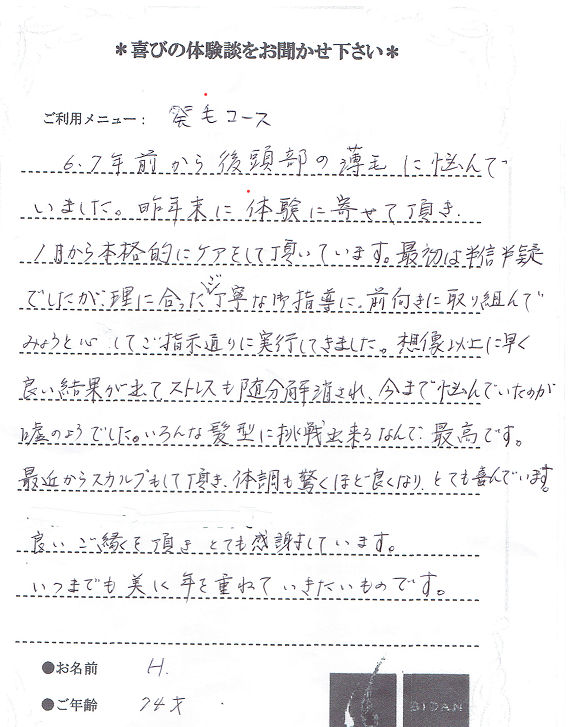 ＊喜びの体験談をお聞かせ下さい＊
ご利用メニュー： 発毛コース
6.7年前から後頭部の薄毛に悩んで
いました。昨年末に体験に寄せて頂き
1月から本格的にケアをして頂いています。最初は半信半疑
でしたが、理に合った丁寧な御指導に、前付きに取り組んで
みようと心してご指示通りに実行してきました。想像以上に早く
良い結果が出てストレスも随分解消され、今まで悩んでいたのが
嘘のようでした。いろんな髪型に挑戦出来るなんて、最高です。
最近からスカルプもして頂き、体調も驚くほど良くなり、とても喜んでいます。
良いご縁を頂きとても感謝しています。
いつまでも美しく年を重ねていきたいものです。
●お名前 H.
●ご年齢 74才
BIDAN